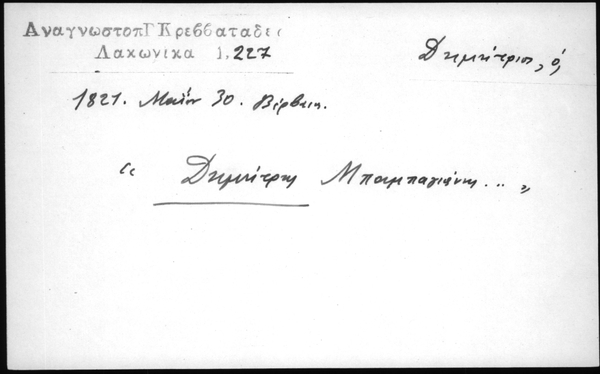 ΑναγνωστοπΓ Κρεββαταδες
Λακωνικα 1, 227
Δημήτριος, ὁ,
1821. Μαΐου 30. Βέρβενα.
“ Δημήτρης Μπαμπαγιάννης... „